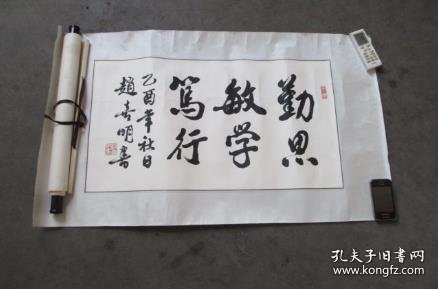 勤思
敏学
笃行
乙酉年秋日
趙喜明書
孔夫子旧书网
www.kongfz.com